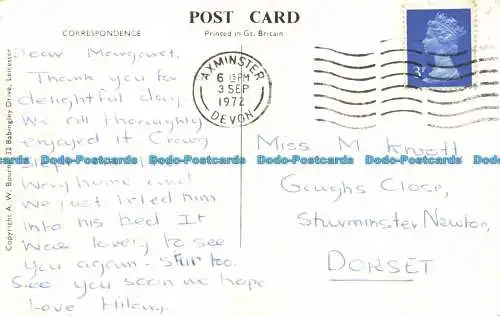 POST CARD
CORRESPONDENCE
Printed in Gt. Britain
Copyright A. W. Bourne, 32 Babingley Drive, Leicester
AXMINSTER
6 15PM
3 SEP
1972
DEVON
3P
Dear Margaret,
Thank you for
delightful day,
We all thoroughly
enjoyed it Craig
way home and
we just lifted him
into his bed It
was lovely to see
you again - Stir too.
See you soon we hope
Love Hilary.
Miss M
Goughs Close,
Sturminster Newton,
DORSET
Dado-Postcards.com Dado-Postcards.com Dado-Postcards.com Dado-Postcards.com